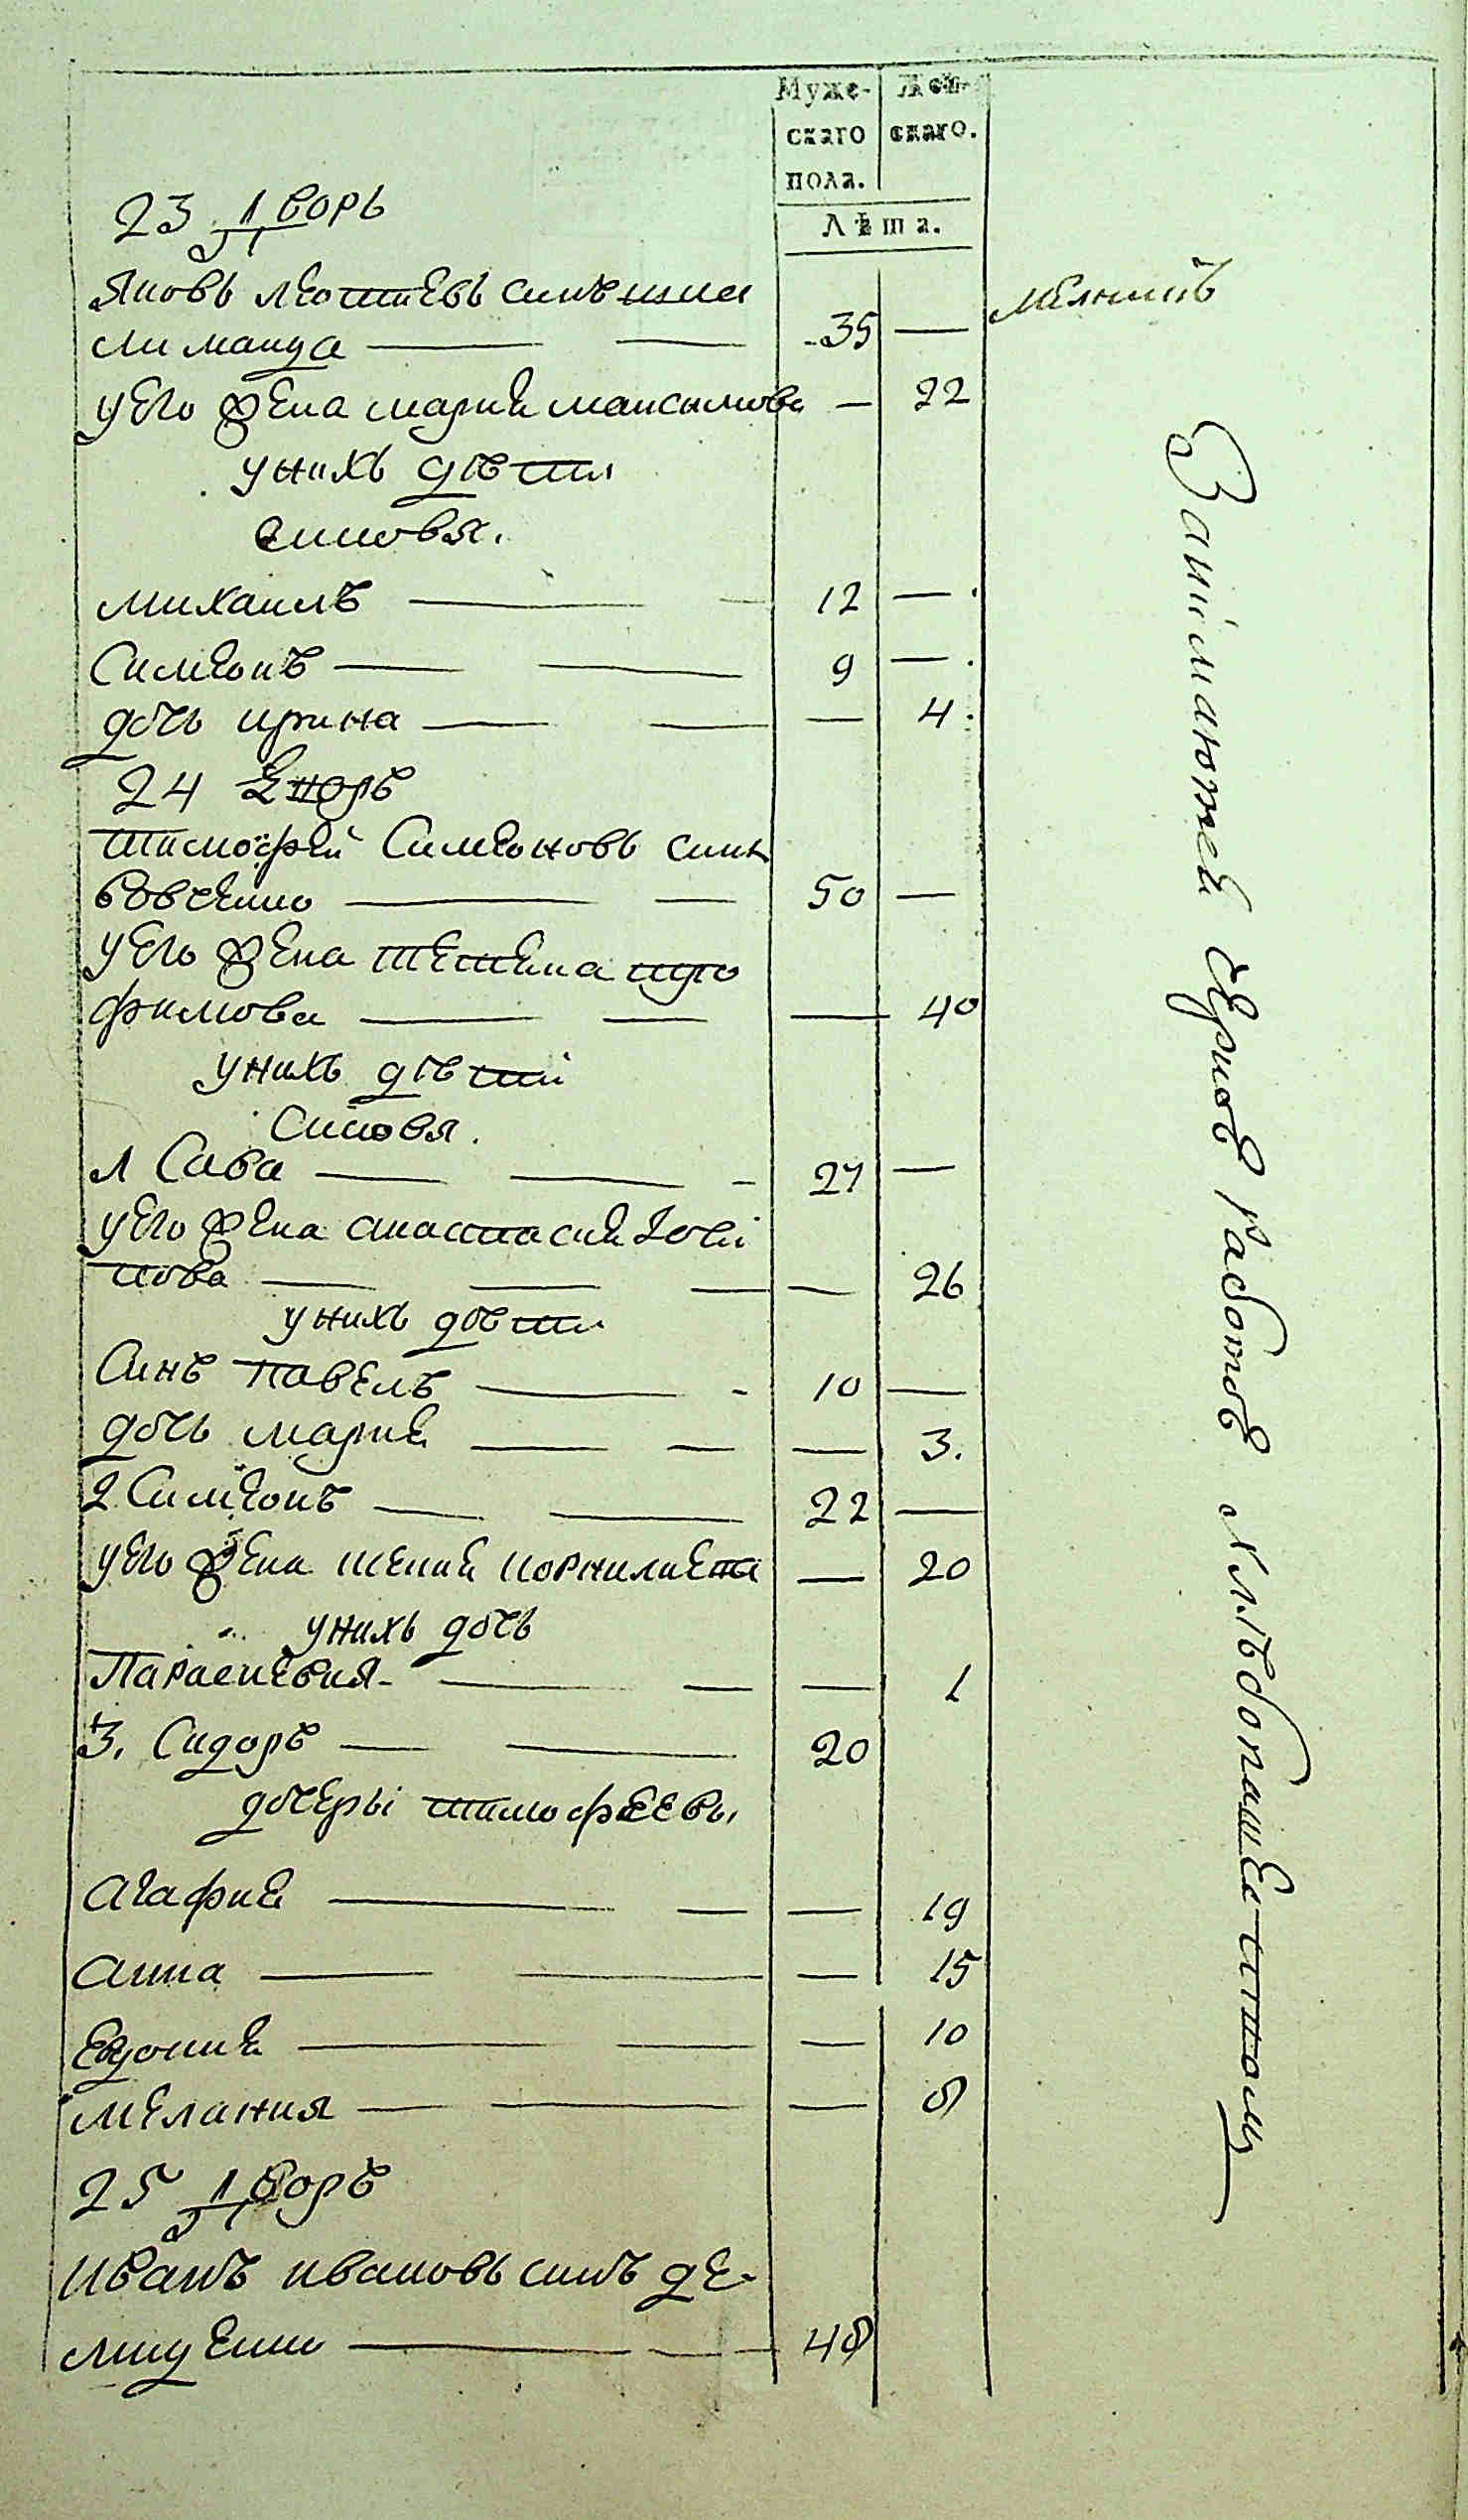 Муже-
скаго
пола.
Жен-
скаго.
Лѣта.
23 Дворъ
Яковъ Леонтиевъ синъ
35 — мелникъ
у его жена мария максимова — 22
у нихъ дѣти
синовья.
михаилъ — 12 —
Симеонъ — 9 —
дочь ирина — 4
24 Дворъ
тимофей Симеоновъ синъ
Вовченко — 50 —
у его жена
фимова — 40
у нихъ дѣти
Синовя.
1 Сава — 27 —
у его жена анастасия
нова — 26
у нихъ дѣти
Синъ павелъ — 10 —
дочь мария — 3.
2 Симеонъ — 22 —
у его жена ксения корнилиева — 20
у нихъ дочь
Параскевия — 1
3. Сидоръ — 20
дочеры тимофеевы
Агафия — 19
анна — 15
Евдокия — 10
мелания — 8
25 Дворъ
иванъ ивановъ синъ де-
мидченко — 48
Занимаются себриоб работоб хлѣбопашественною